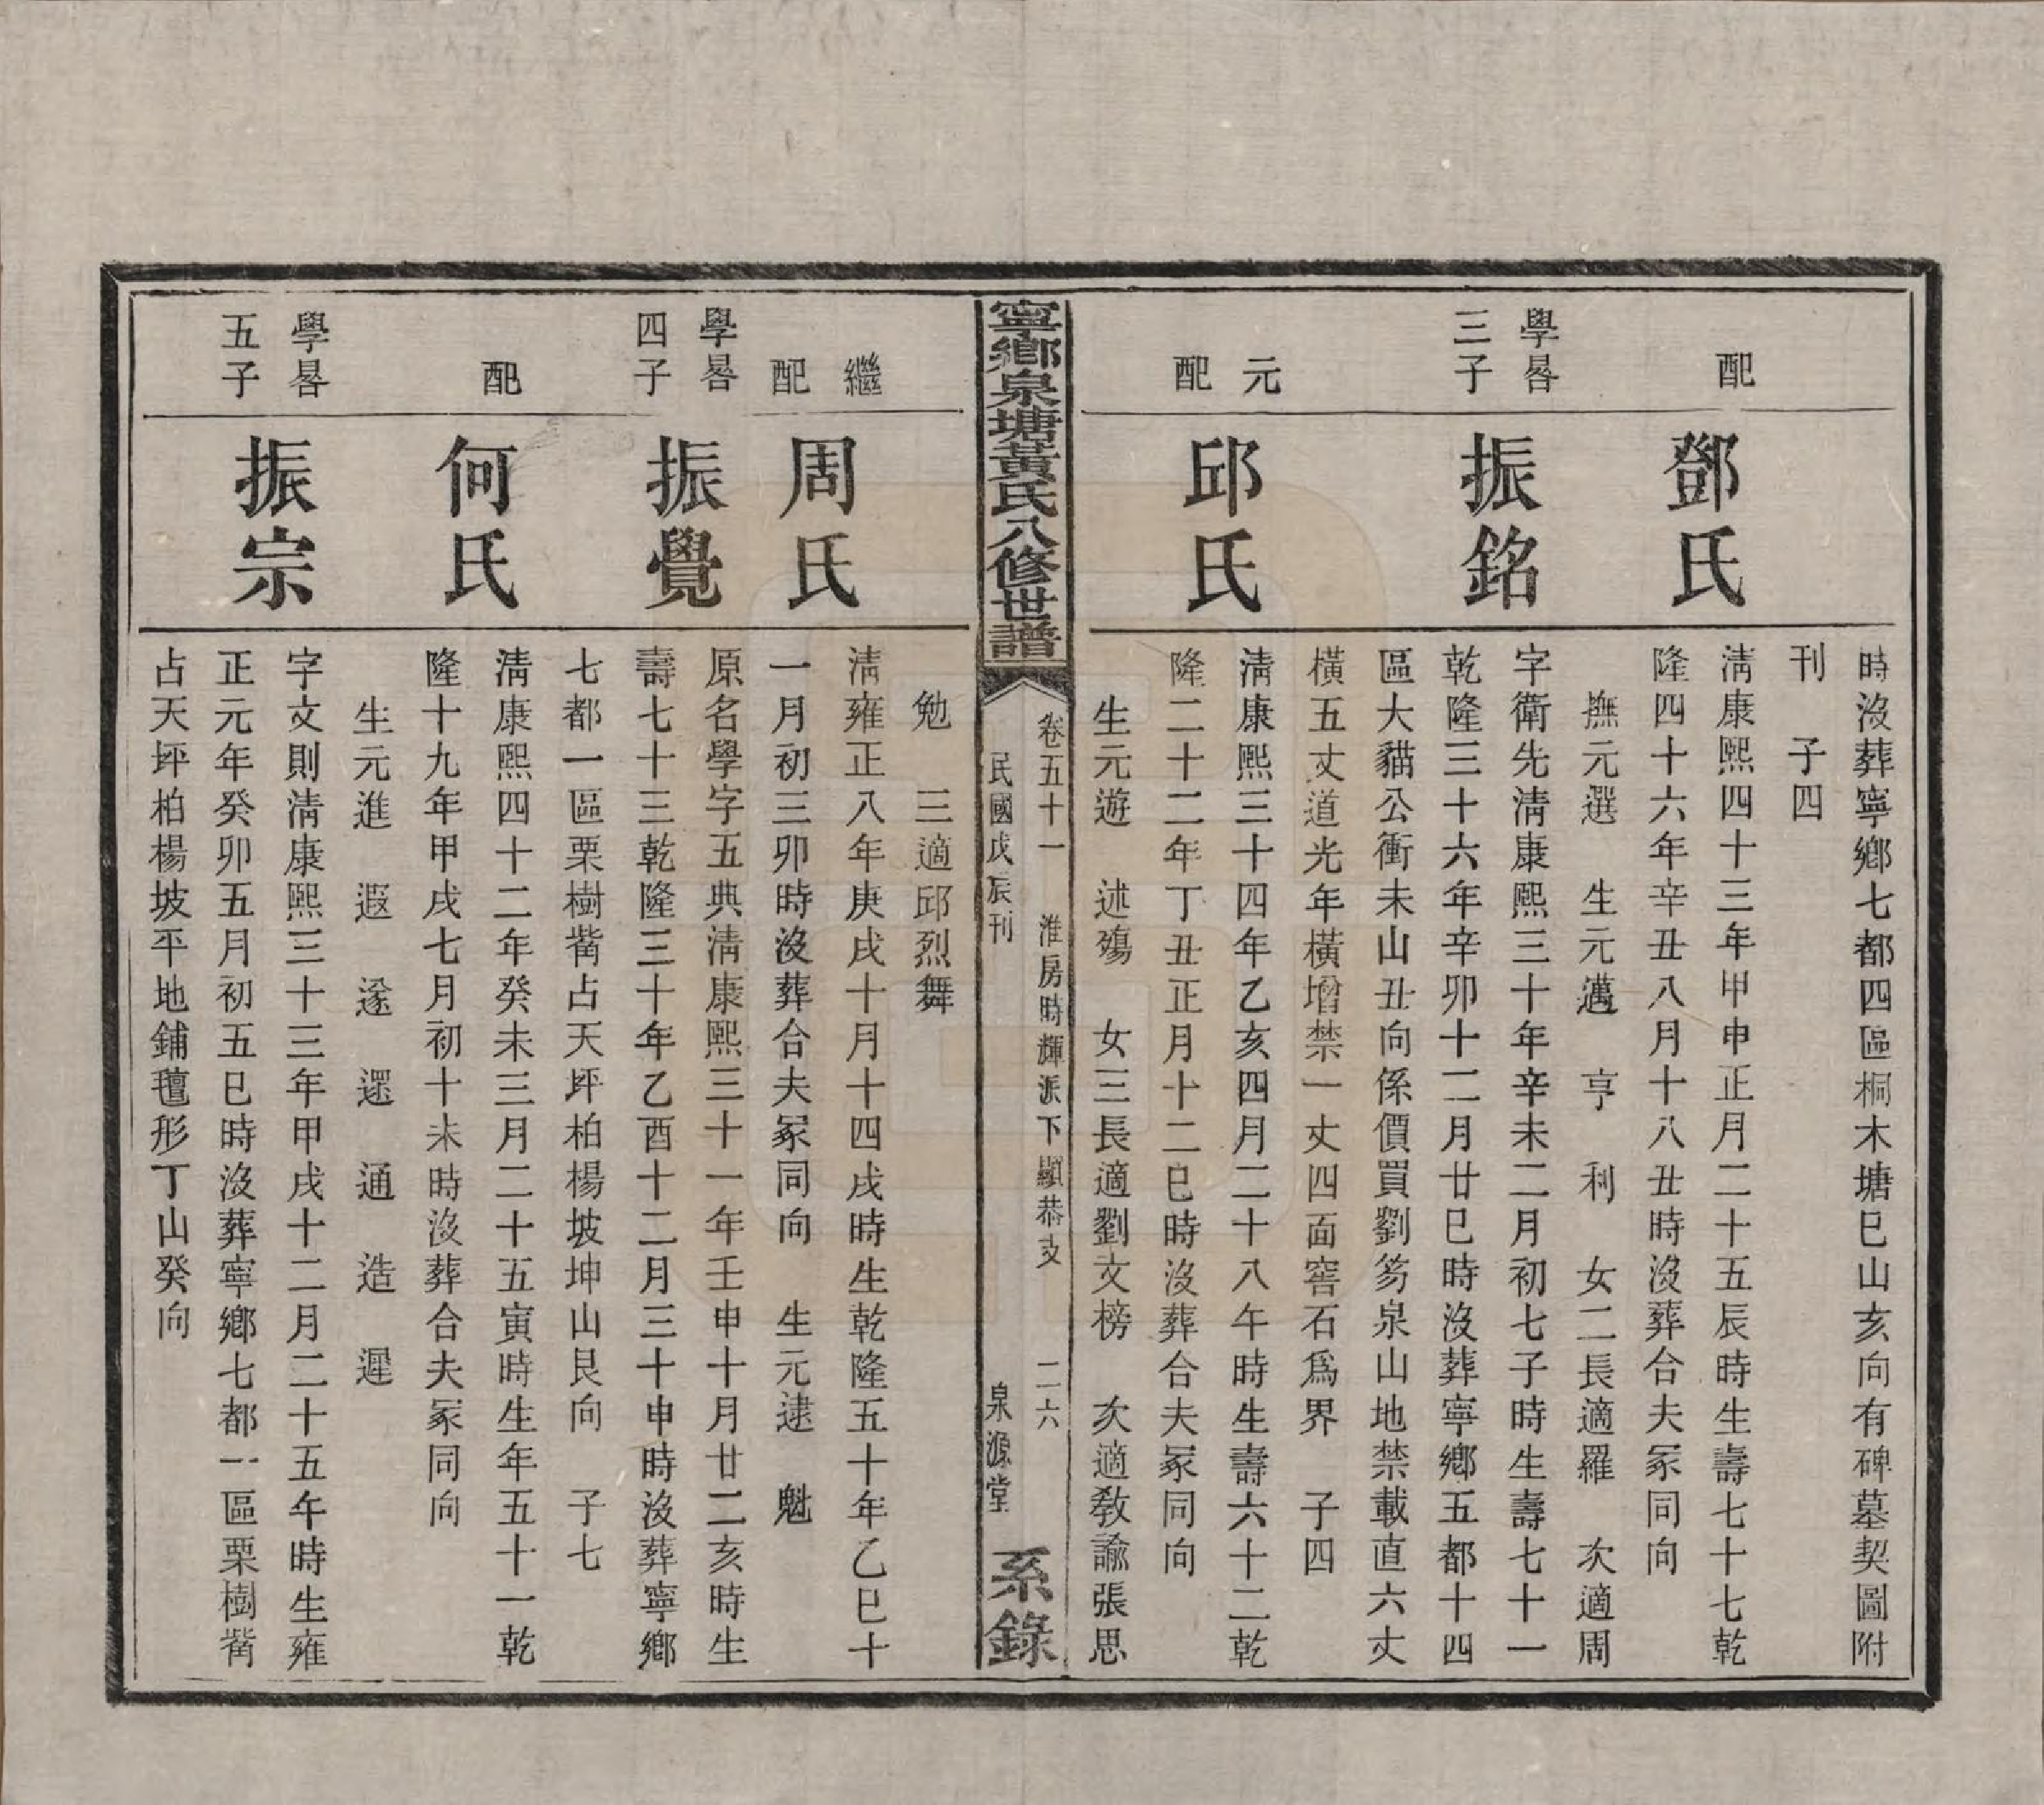 時沒葬寧鄉七都四區桐木塘巳山亥向有碑墓契圖附
刊　子四
配
鄧氏
淸康熙四十三年甲申正月二十五辰時生壽七十七乾
隆四十六年辛丑八月十八丑時沒葬合夫冢同向
撫元選　生元邁　亨　利　女二長適羅　次適周
學晷
三子
振銘
字衛先淸康熙三十年辛未二月初七子時生壽七十一
乾隆三十六年辛卯十二月廿巳時沒葬寧鄉五都十四
區大貓公衝未山丑向係價買劉笏泉山地禁載直六丈
橫五丈道光年橫增禁一丈四面窖石爲界　子四
元
配
邱氏
淸康熙三十四年乙亥四月二十八午時生壽六十二乾
隆二十二年丁丑正月十二巳時沒葬合夫冢同向
生元遊　述殤　女三長適劉文榜　次適敎諭張思
寧鄉泉塘黃氏八修世譜
卷五十一　淮房時輝派下顯恭支　二六
民國戊辰刊　泉源堂
系錄
勉　三適邱烈舞
繼
配
周氏
淸雍正八年庚戌十月十四戌時生乾隆五十年乙巳十
一月初三卯時沒葬合夫冢同向　生元逮　魁
學晷
四子
振覺
原名學字五典淸康熙三十一年壬申十月廿二亥時生
壽七十三乾隆三十年乙酉十二月三十申時沒葬寧鄉
七都一區栗樹觜占天坪柏楊坡坤山艮向　子七
配
何氏
淸康熙四十二年癸未三月二十五寅時生年五十一乾
隆十九年甲戌七月初十未時沒葬合夫冢同向
生元進　遐　遂　還　通　造　遲
學晷
五子
振宗
字文則淸康熙三十三年甲戌十二月二十五午時生雍
正元年癸卯五月初五巳時沒葬寧鄉七都一區栗樹觜
占天坪柏楊坡平地鋪氊形丁山癸向